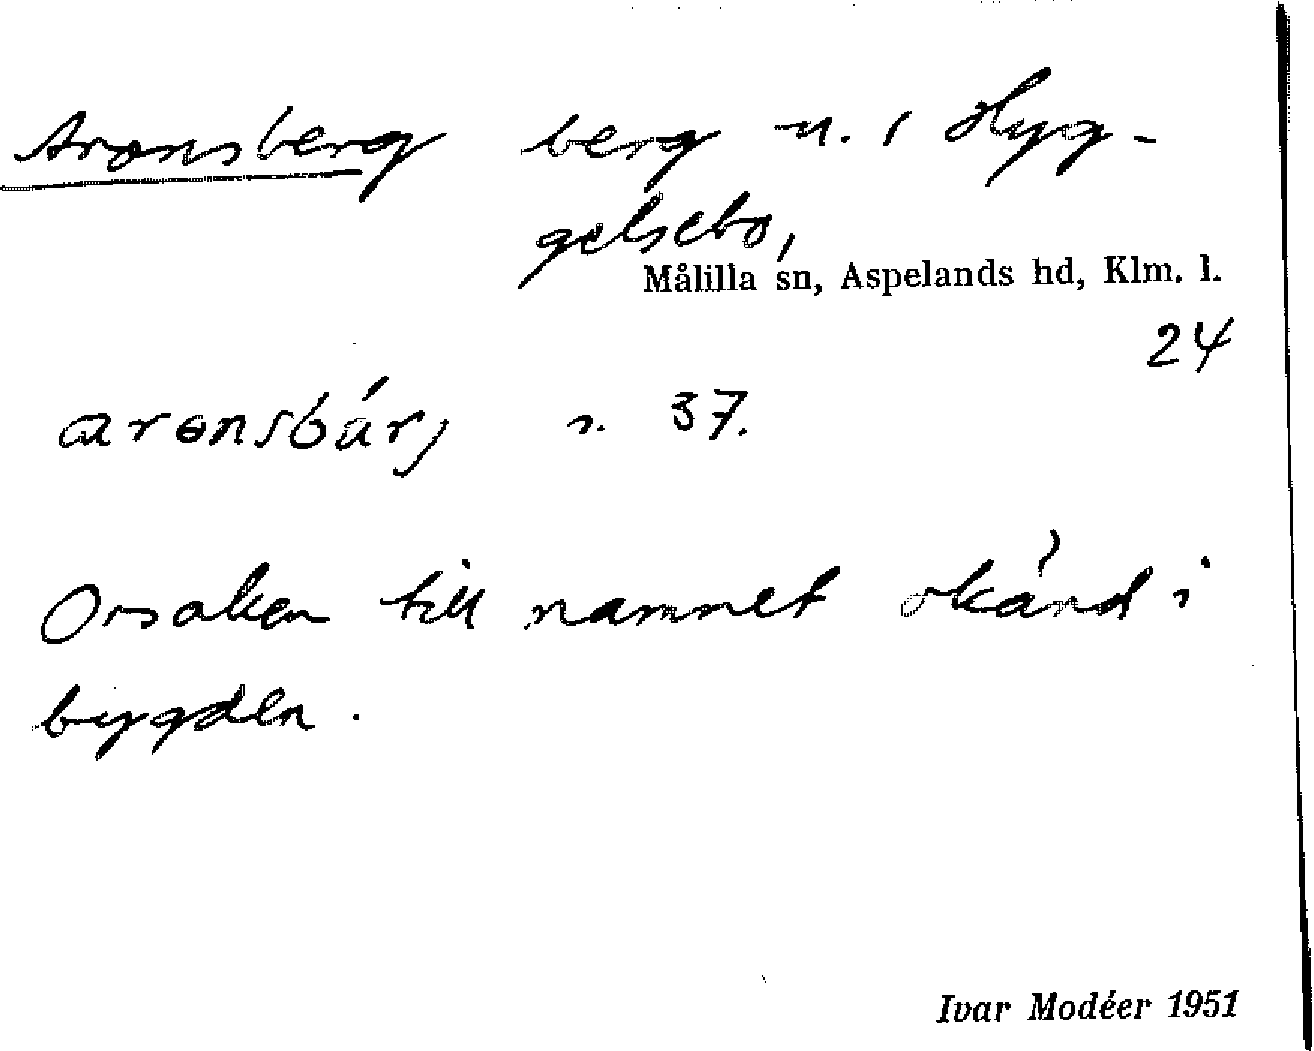 Aronsberg berg n. i Hyg-
gelsebo,
Målilla sn, Aspelands hd, Klm. l.
24
arɵnsbárj s. 37.
Orsaken till namnet okänd i
bygden.
Ivar Modéer 1951